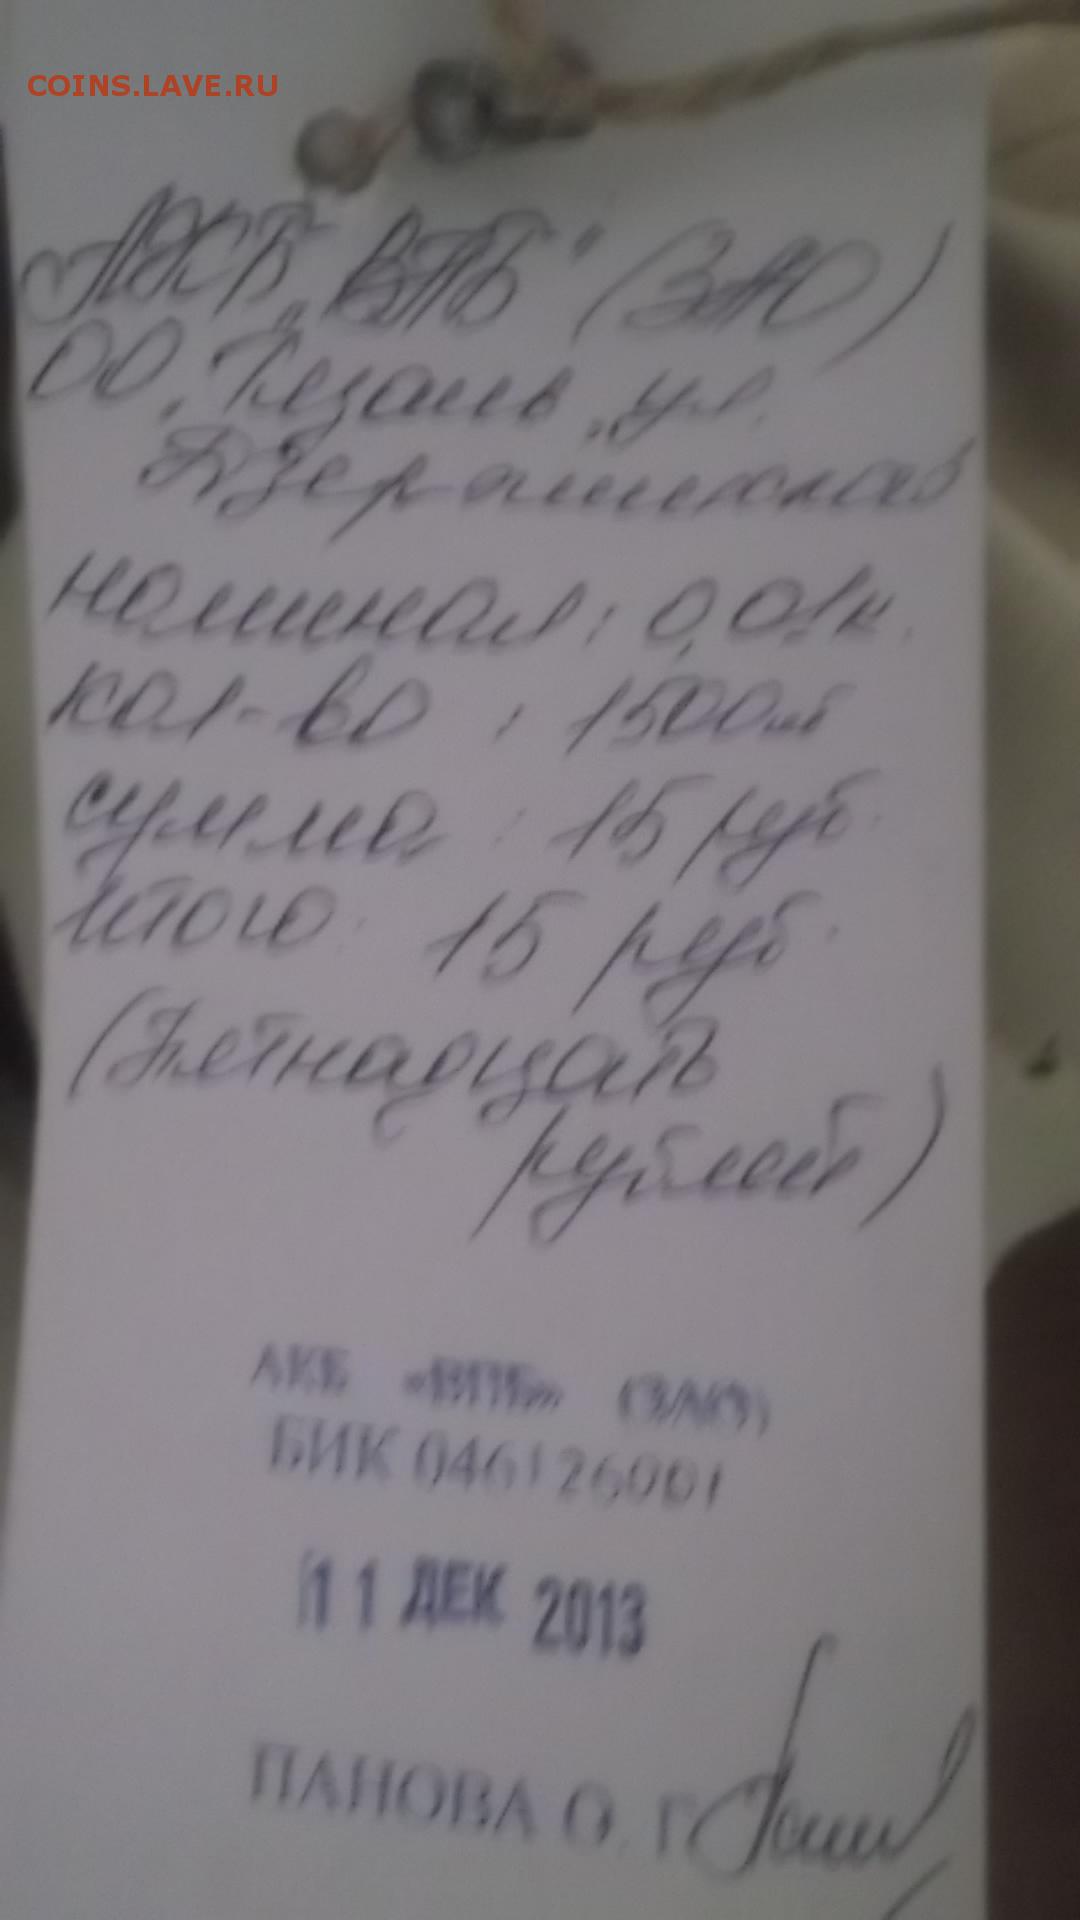 COINS.LAVE.RU
АКБ „ВПБ" (ЗАО)
ОО, Рязань, ул.
номинал: 0,01к.
кол-во : 1500шт
сумма : 15 руб.
итого: 15 руб.
(Пятнадцать
рублей)
АКБ «ВПБ» (ЗАО)
БИК 046126001
11 ДЕК 2013
ПАНОВА О. Г